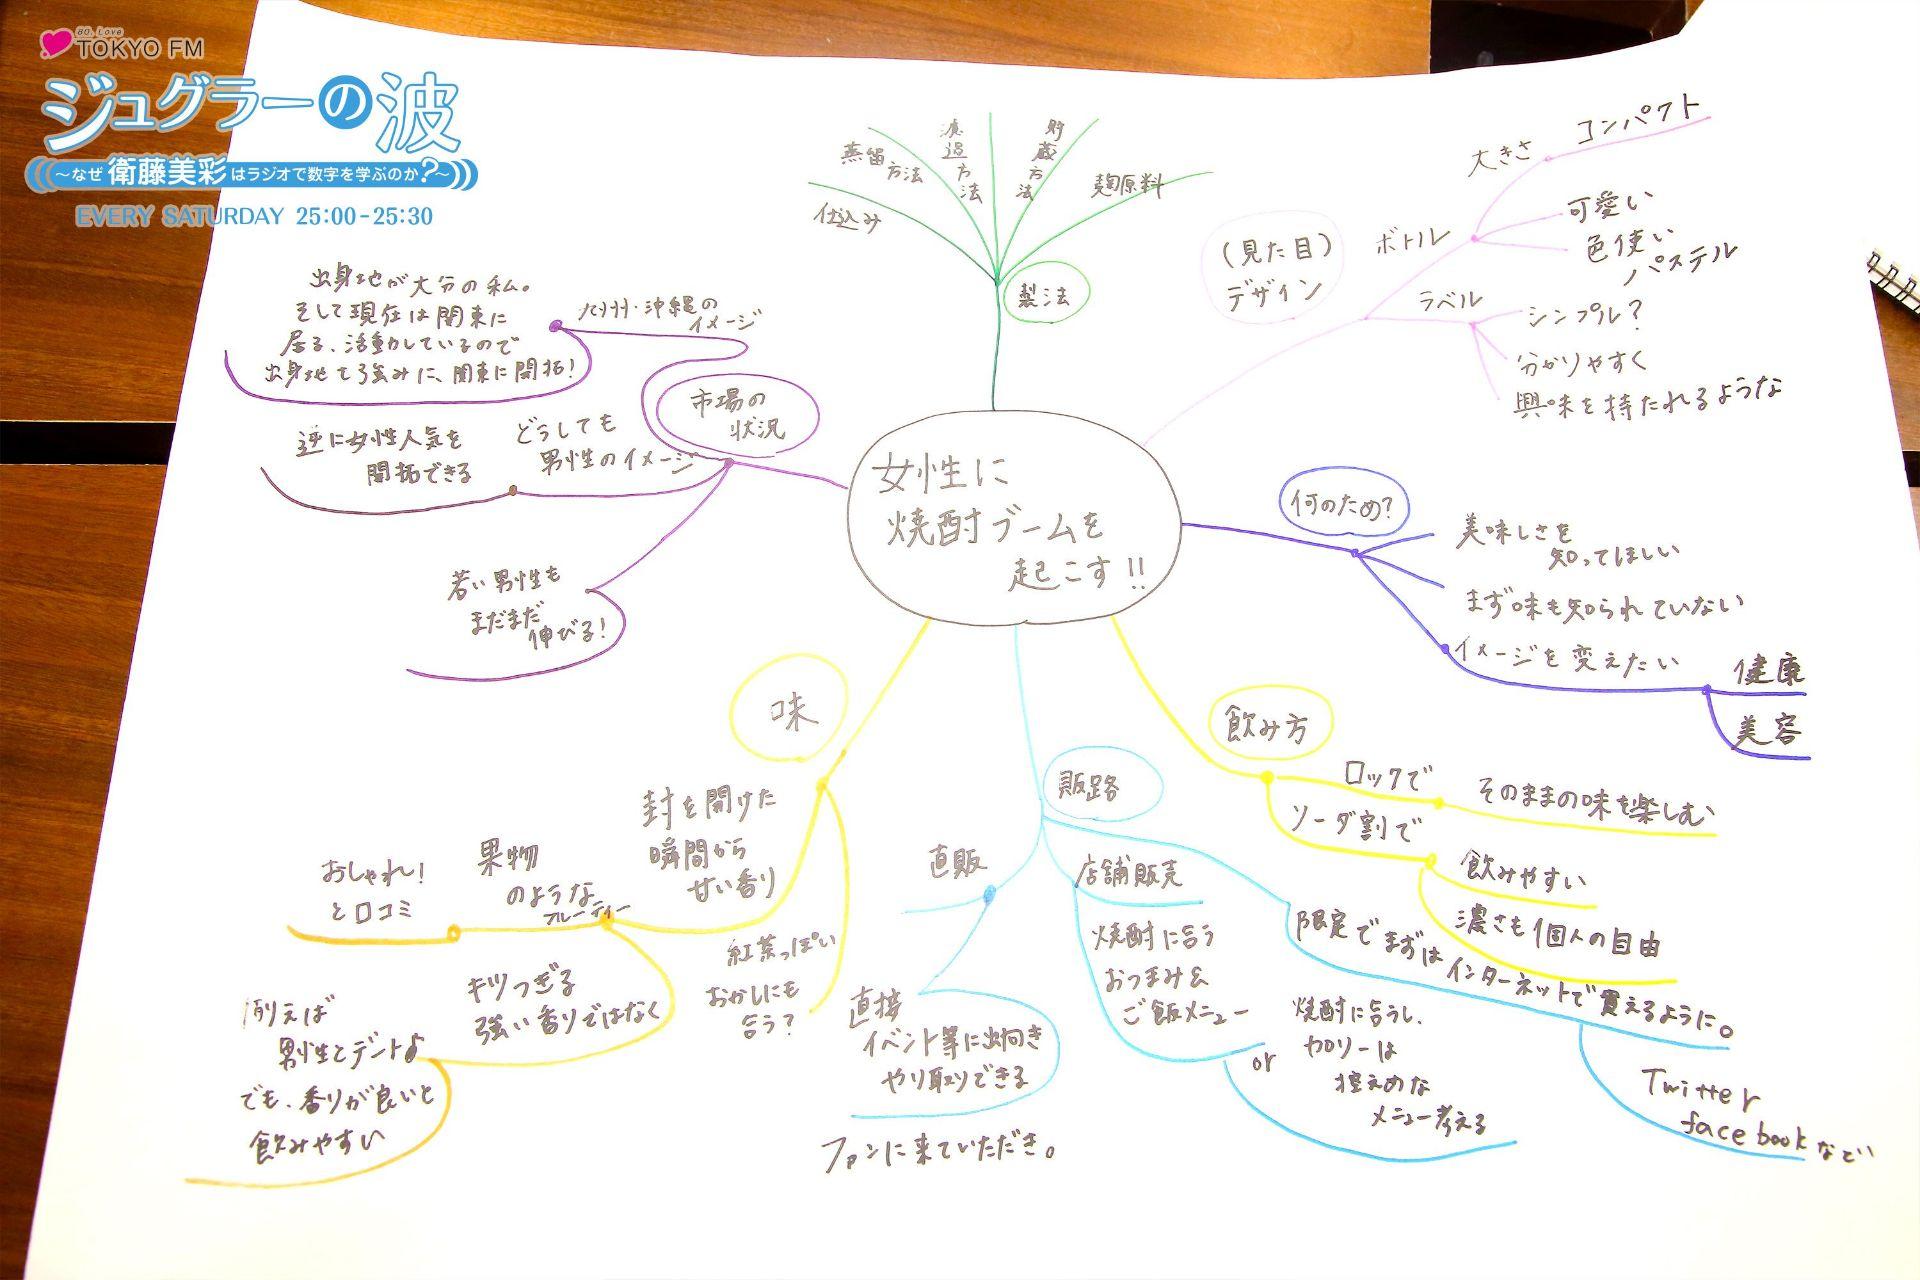 80. Love
TOKYO FM
ジュグラーの波
～なぜ衛藤美彩はラジオで数字を学ぶのか?～
EVERY SATURDAY 25:00-25:30
女性に
焼酎ブームを
起こす!!
製法
仕込み
蒸留方法
濾過方法
貯蔵方法
麹原料
(見た目)
デザイン
ボトル
大きさ
コンパクト
可愛い
色使い
パステル
ラベル
シンプル?
分かりやすく
興味を持たれるような
何のため?
美味しさを
知ってほしい
まず味も知られていない
イメージを変えたい
健康
美容
飲み方
ロックで
そのままの味を楽しむ
ソーダ割で
飲みやすい
濃さも個人の自由
販路
直販
直接
イベント等に出向き
やり取りできる
ファンに来ていただき。
店舗販売
焼酎に合う
おつまみ&
ご飯メニュー
or
焼酎に合うし、
カロリーは
控えめな
メニュー考える
限定でまずはインターネットで買えるように。
Twitter
facebookなどで
味
封を開けた
瞬間から
甘い香り
果物
のような
フルーティー
おしゃれ!
と口コミ
キツすぎる
強い香りではなく
例えば
男性とデート
でも、香りが良いと
飲みやすい
紅茶っぽい
おかしにも
合う?
市場の
状況
九州・沖縄の
イメージ
出身地が大分の私。
そして現在は関東に
居る、活動しているので
出身地も強みに、関東に開拓!
どうしても
男性のイメージ
逆に女性人気を
開拓できる
若い男性も
まだまだ
伸びる!